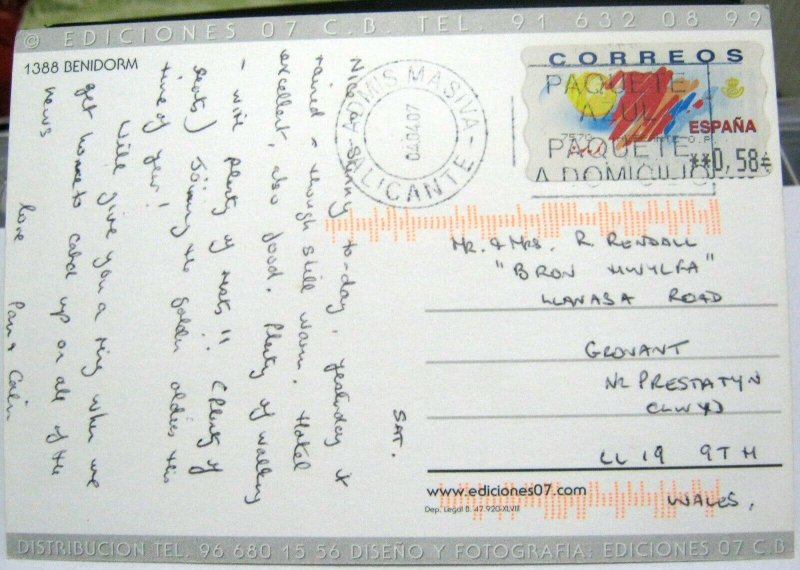 © EDICIONES 07 C.B. TEL. 91 632 08 99
1388 BENIDORM
SAT.
Nice & skinny to-day, yesterday it
rained - though still warm. Hotel
excellent, also food. Plenty of walking
- wire plenty of rests!! (Plenty of
seats) Joining the golden oldies this
time of year!
Will give you a ring when we
get home to catch up on all of the
news
love Pam & Colin
ADMIS MASIVA
04 04 07
ALICANTE
CORREOS
PAQUETE
AZUL
ESPAÑA
PAQUETE
**0,58€
A DOMICILIO
Mr. & Mrs. R. RENDALL
"BRON HWYLFA"
LLANASA ROAD
GRONANT
NR PRESTATYN
CLWYD
LL19 9TH
WALES.
www.ediciones07.com
Dep. Legal B. 47.920-XLVIII
DISTRIBUCION TEL. 96 680 15 56 DISEÑO Y FOTOGRAFIA: EDICIONES 07 C.B